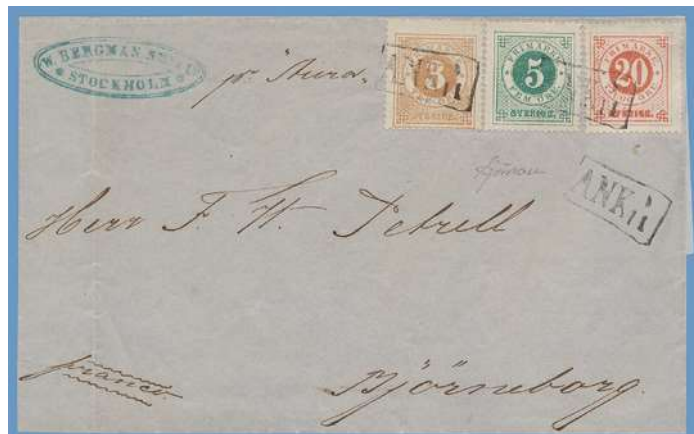 W. BERGMAN
STOCKHOLM
pr Aura.
3
SVERIGE.
FRIMÄRKE
5
FEM ÖRE
SVERIGE.
FRIMÄRKE
20
TJUGO ÖRE
SVERIGE.
ANK.
ANK.
ANK.
Herr F. W. Petrell
franco
Björneborg.